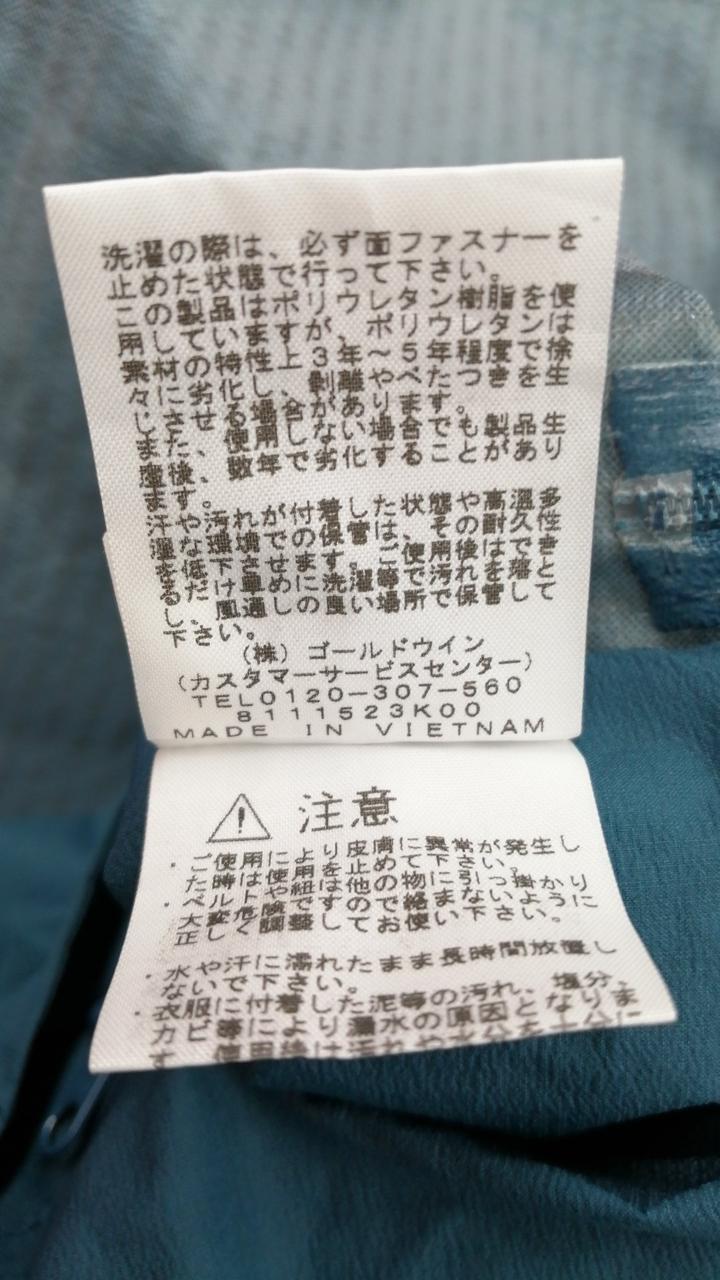 洗濯の際は、必ず面ファスナーを
止めた状態で行って下さい。
この製品はポリウレタン樹脂を使
用していますが、ポリウレタンは
素材の特性上、3年～5年程度で徐
々に劣化し、剥離やべたつきを生
じさせる場合があります。
また、使用しない場合でも製品生
産後、数年で劣化することがあり
ます。
汗や汚れが付着した状態や高温多
湿な環境での保管は、その耐久性
を低下させます。ご使用後はでき
るだけ早めに洗濯等で汚れを落と
し、風通しの良い場所で保管して
下さい。
(株)ゴールドウイン
(カスタマーサービスセンター)
TEL0120-307-560
8111523K00
MADE IN VIETNAM
注意
・ご使用により皮膚に異常が発生し
た時は使用を止めて下さい。
・ベルトや紐は他の物に引っ掛かり
大変危険ですので絡まないように
正しく調整してお使い下さい。
・水や汗に濡れたまま長時間放置し
ないで下さい。
・衣服に付着した泥等の汚れ、塩分、
カビ等により漏水の原因となりま
す。使用後は汚れや水分を十分に